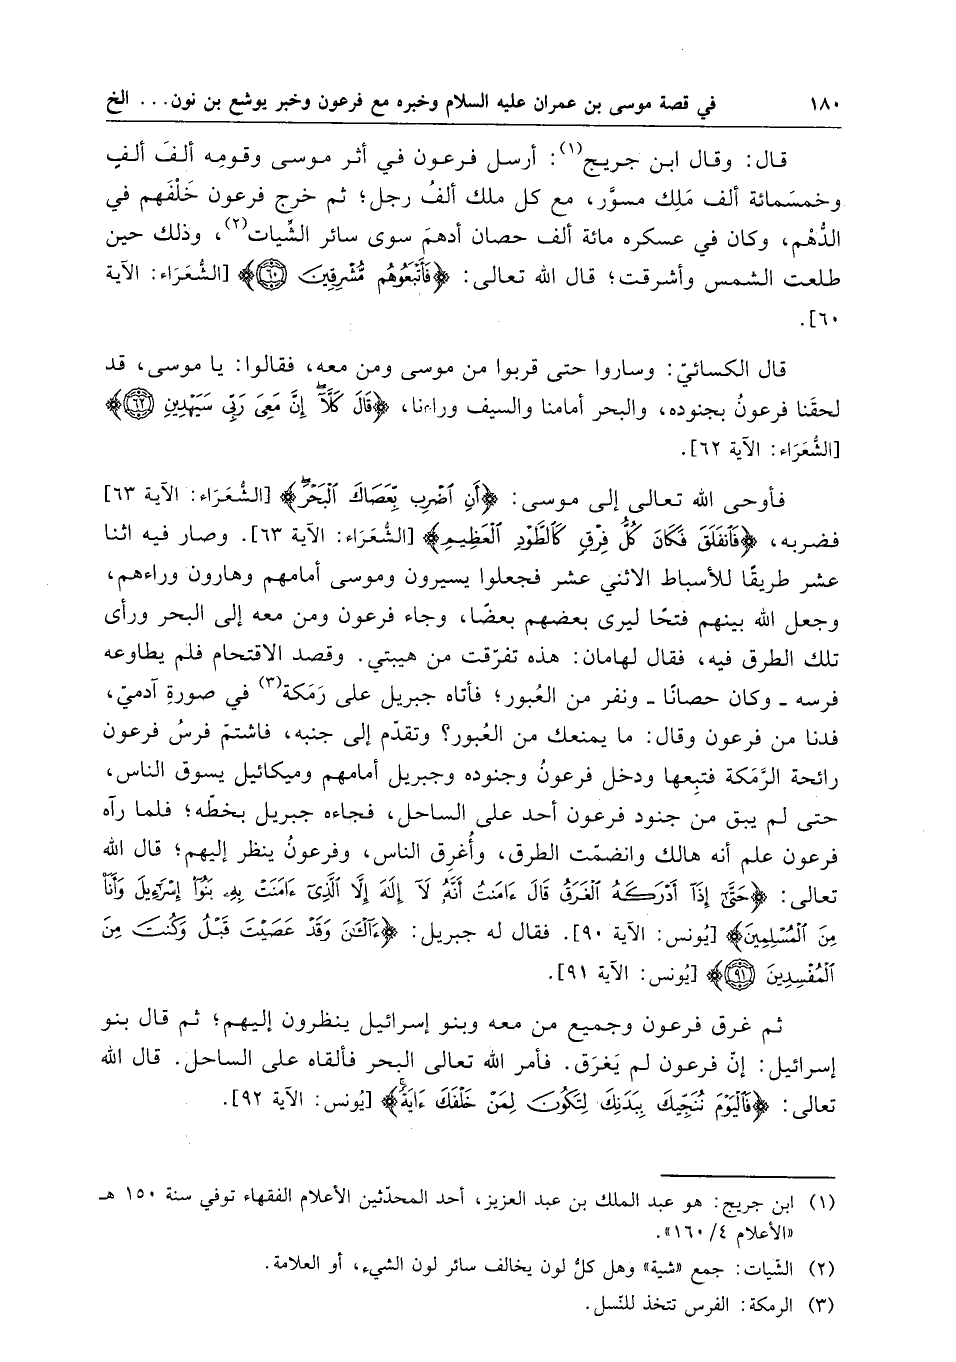 ١٨٠ في قصة موسى بن عمران عليه السلام وخبره مع فرعون وخبر يوشع بن نون... الخ
قال: وقال ابن جريج(١): أرسل فرعون في أثر موسى وقومِه ألفَ ألفِ
وخمسَمائة ألف مَلِك مسوَّر، مع كل ملك ألفُ رجل؛ ثم خرج فرعون خَلْفَهم في
الدُّهْم، وكان في عسكره مائة ألف حصان أدهمَ سوى سائر الشِّيات(٢)، وذلك حين
طلعت الشمس وأشرقت؛ قال الله تعالى: ﴿فَأَتْبَعُوهُم مُّشْرِقِينَ ٦٠﴾ [الشُّعَرَاء: الآية
٦٠].
قال الكسائيّ: وساروا حتى قربوا من موسى ومن معه، فقالوا: يا موسى، قد
لحقَنا فرعونُ بجنوده، والبحر أمامنا والسيف وراءنا، ﴿قَالَ كَلَّآ إِنَّ مَعِىَ رَبِّى سَيَهْدِينِ ٦٢﴾
[الشُّعَرَاء: الآية ٦٢].
فأوحى الله تعالى إلى موسى: ﴿أَنِ ٱضْرِب بِّعَصَاكَ ٱلْبَحْرَ﴾ [الشُّعَرَاء: الآية ٦٣]
فضربه، ﴿فَٱنفَلَقَ فَكَانَ كُلُّ فِرْقٍ كَٱلطَّوْدِ ٱلْعَظِيمِ﴾ [الشُّعَرَاء: الآية ٦٣]. وصار فيه اثنا
عشر طريقًا للأسباط الاثني عشر فجعلوا يسيرون وموسى أمامهم وهارون وراءهم،
وجعل الله بينهم فتحًا ليرى بعضهم بعضًا، وجاء فرعون ومن معه إلى البحر ورأى
تلك الطرق فيه، فقال لهامان: هذه تفرّقت من هيبتي. وقصد الاقتحام فلم يطاوعه
فرسه ـ وكان حصانًا ـ ونفر من العُبور؛ فأتاه جبريل على رَمَكة(٣) في صورةِ آدميّ،
فدنا من فرعون وقال: ما يمنعك من العُبور؟ وتقدّم إلى جنبه، فاشتمّ فرسُ فرعون
رائحة الرَّمَكة فتبِعها ودخل فرعونُ وجنوده وجبريل أمامهم وميكائيل يسوق الناس،
حتى لم يبق من جنود فرعون أحد على الساحل، فجاءه جبريل بخطّه؛ فلما رآه
فرعون علم أنه هالك وانضمّت الطرق، وأُغرِق الناس، وفرعونُ ينظر إليهم؛ قال الله
تعالى: ﴿حَتَّىٰٓ إِذَآ أَدْرَكَهُ ٱلْغَرَقُ قَالَ ءَامَنتُ أَنَّهُۥ لَآ إِلَٰهَ إِلَّا ٱلَّذِىٓ ءَامَنَتْ بِهِۦ بَنُوٓاْ إِسْرَٰٓءِيلَ وَأَنَا۠
مِنَ ٱلْمُسْلِمِينَ﴾ [يُونس: الآية ٩٠]. فقال له جبريل: ﴿ءَآلْـَٰٔنَ وَقَدْ عَصَيْتَ قَبْلُ وَكُنتَ مِنَ
ٱلْمُفْسِدِينَ ٩١﴾ [يُونس: الآية ٩١].
ثم غرق فرعون وجميع من معه وبنو إسرائيل ينظرون إليهم؛ ثم قال بنو
إسرائيل: إنّ فرعون لم يَغرَق. فأمر الله تعالى البحر فألقاه على الساحل. قال الله
تعالى: ﴿فَٱلْيَوْمَ نُنَجِّيكَ بِبَدَنِكَ لِتَكُونَ لِمَنْ خَلْفَكَ ءَايَةً﴾ [يُونس: الآية ٩٢].
(١) ابن جريج: هو عبد الملك بن عبد العزيز، أحد المحدّثين الأعلام الفقهاء توفي سنة ١٥٠ هـ
«الأعلام ٤/ ١٦٠».
(٢) الشّيات: جمع «شية» وهل كلُّ لون يخالف سائر لون الشيء، أو العلامة.
(٣) الرمكة: الفرس تتخذ للنّسل.